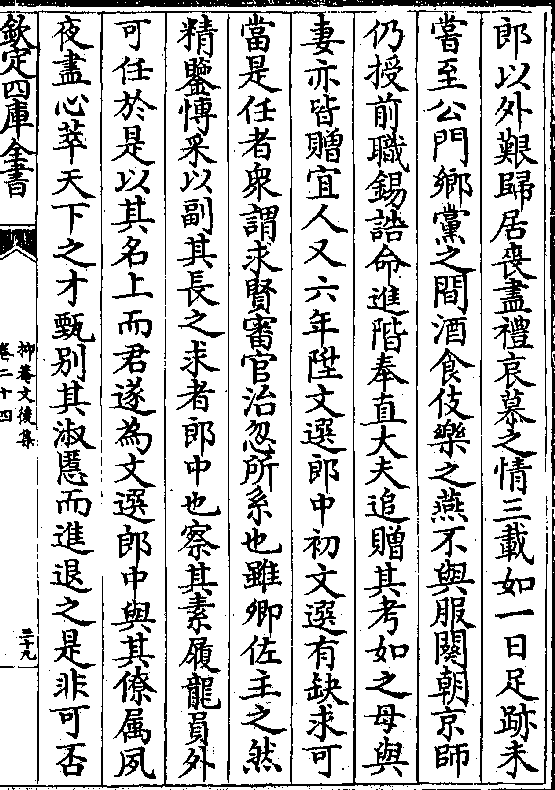 郎以外艱歸居喪盡禮哀慕之情三載如一日足跡未
嘗至公門鄉黨之間酒食伎樂之燕不與服闋朝京師
仍授前職錫誥命進階奉直大夫追贈其考如之母與
妻亦皆贈宜人又六年陞文選郎中初文選有缺求可
當是任者衆謂求賢審官治忽所系也雖卿佐主之然
精鑒慱采以副其長之求者郎中也察其素履龍員外
可任於是以其名上而君遂為文選郎中與其僚属夙
夜盡心萃天下之才甄别其淑慝而進退之是非可否
欽定四庫全書
抑菴文後集
卷二十四
三十九